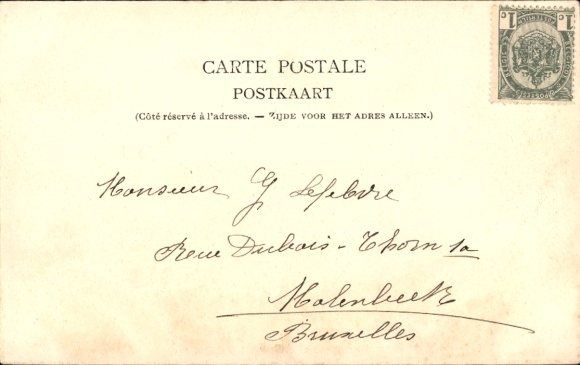 CARTE POSTALE
POSTKAART
(Côté réservé à l'adresse. — ZIJDE VOOR HET ADRES ALLEEN.)
1c 1c
Monsieur G Lefebvre
Rue Dubois - Thorn 1a
Molenbeek
Bruxelles